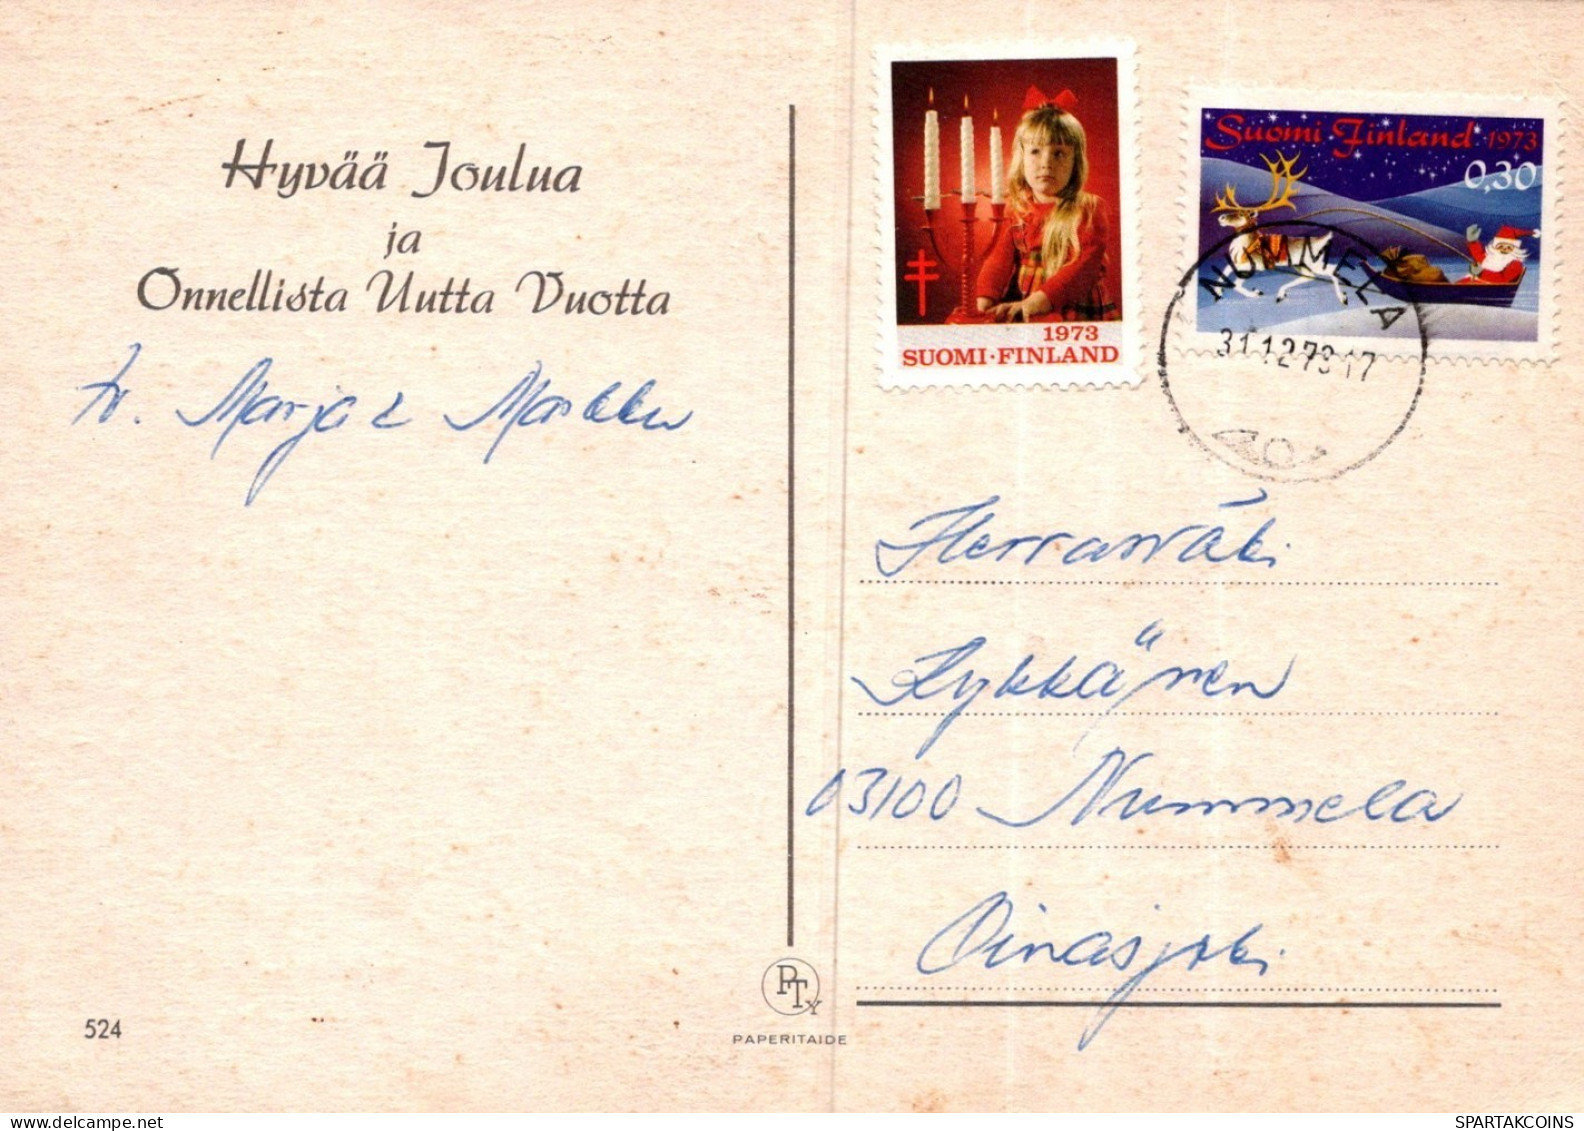 Hyvää Joulua
ja
Onnellista Uutta Vuotta
tv. Marja & Markku
1973
SUOMI·FINLAND
Suomi Finland 1973
0,30
NUMMELA
31.12.73.17
Herrasväki
Kykkänen
03100 Nummela
Oinasjoki
524
PTY
PAPERITAIDE
SPARTAKCOINS.COM